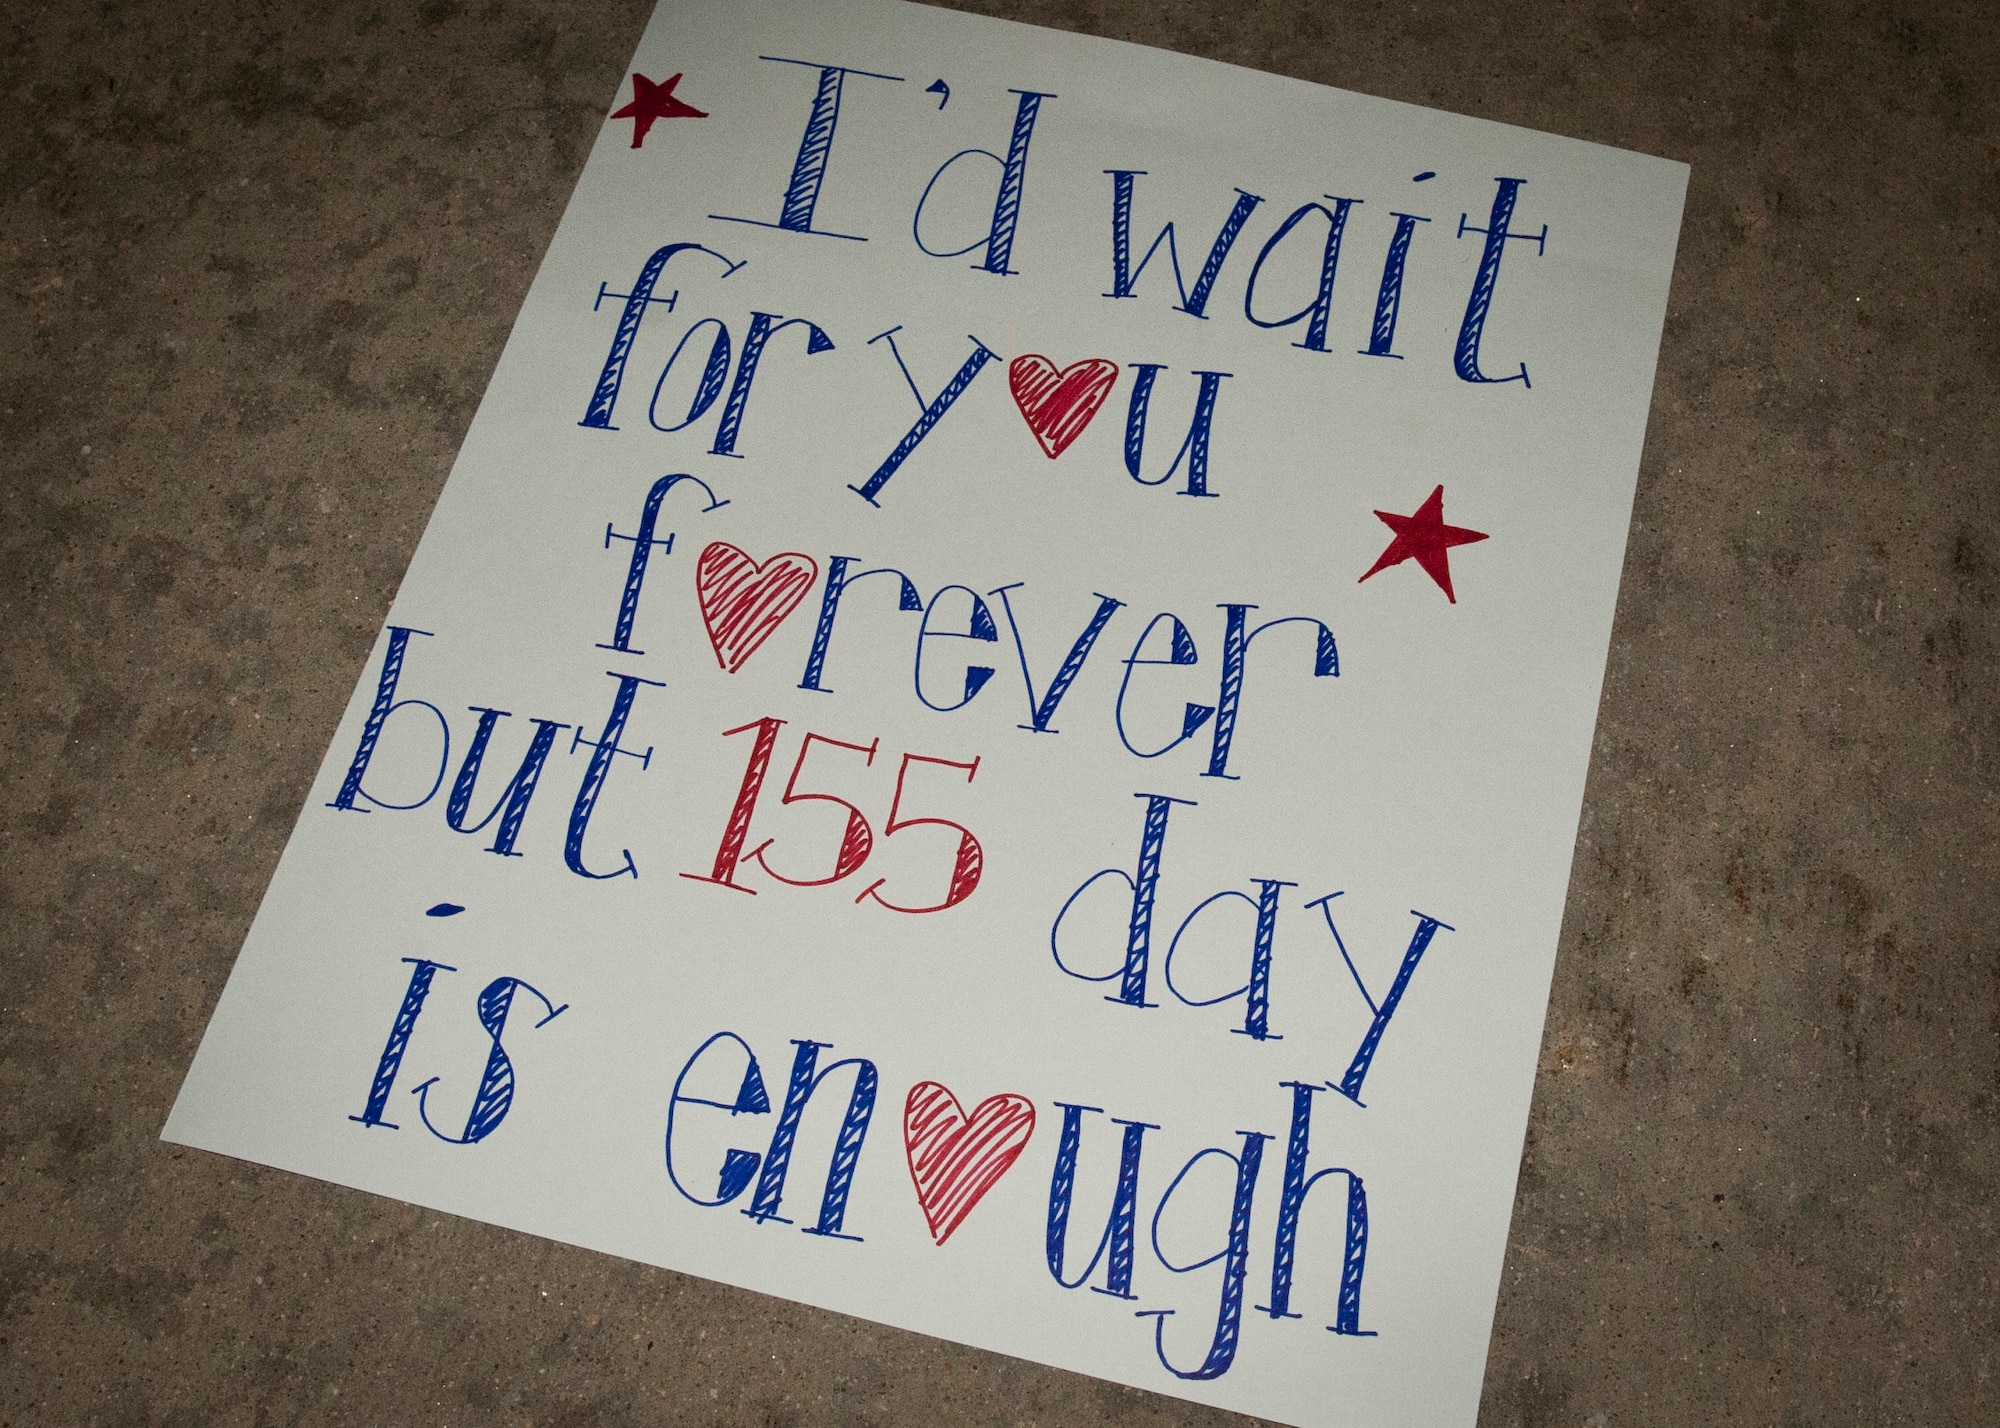 I'd wait
for y♥u
f♥rever
but 155 day
is en♥ugh